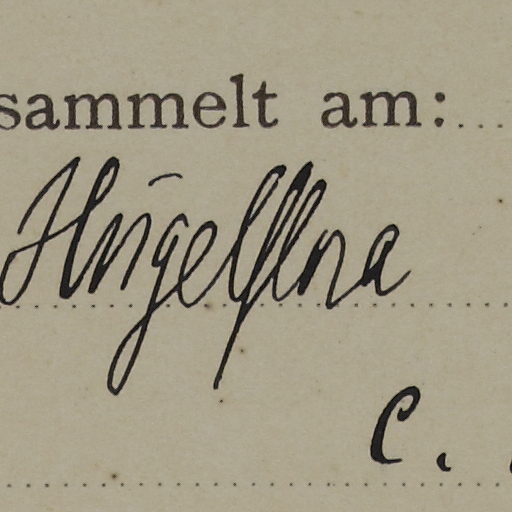 sammelt am:
Hügelflora
C.